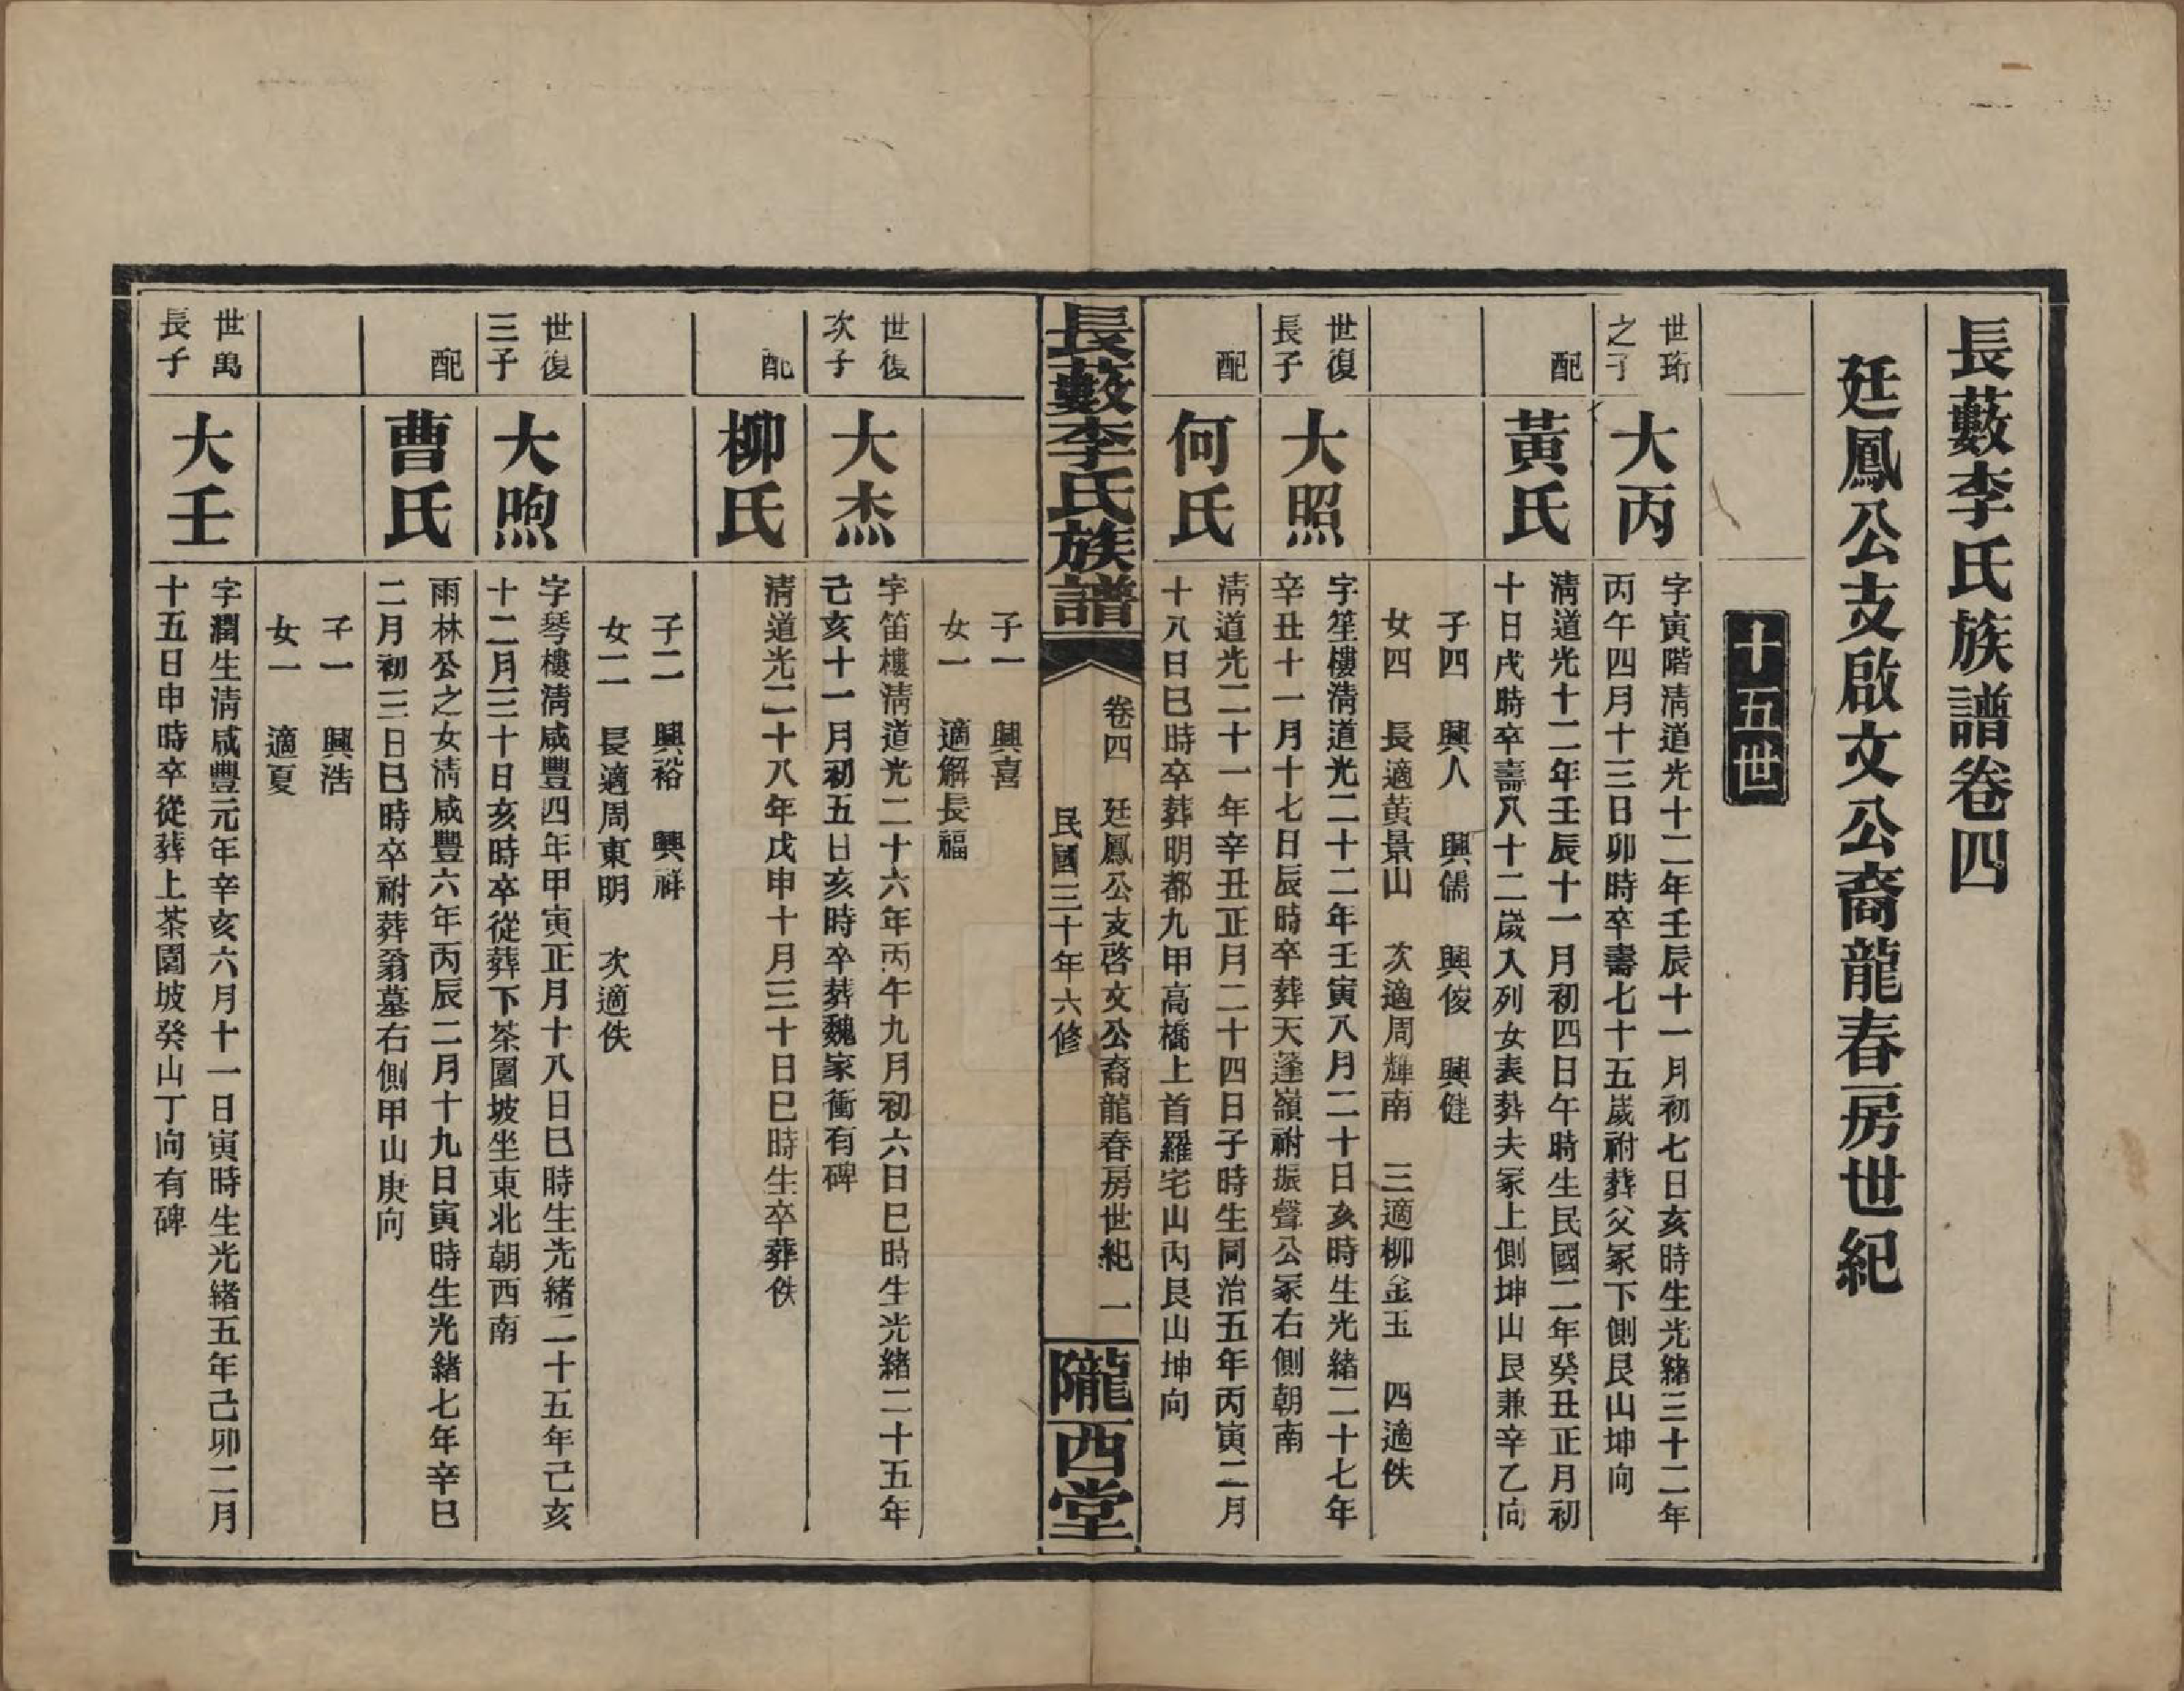 長藪李氏族譜卷四
廷鳳公支啟文公裔龍春房世紀
十五世
世珩
之子
大丙
字寅階淸道光十二年壬辰十一月初七日亥時生光緖三十二年
丙午四月十三日卯時卒壽七十五歲祔葬父冢下側艮山坤向
配
黃氏
淸道光十二年壬辰十一月初四日午時生民國二年癸丑正月初
十日戌時卒壽八十二歲入列女表葬夫冢上側坤山艮兼辛乙向
子四 興人 興儒 興俊 興健
女四 長適黄景山 次適周輝南 三適柳金玉 四適佚
世復
長子
大照
字笙樓淸道光二十二年壬寅八月二十日亥時生光緖二十七年
辛丑十一月十七日辰時卒葬天蓬嶺祔振聲公冢右側朝南
配
何氏
淸道光二十一年辛丑正月二十四日子時生同治五年丙寅二月
十八日巳時卒葬明都九甲高橋上首羅宅山內艮山坤向
長藪李氏族譜
卷四 廷鳳公支啓文公裔龍春房世紀 一
民國三十年六修
隴西堂
子一 興喜
女一 適解長福
世復
次子
大杰
字笛樓淸道光二十六年丙午九月初六日巳時生光緖二十五年
己亥十一月初五日亥時卒葬魏家衝有碑
配
柳氏
淸道光二十八年戊申十月三十日巳時生卒葬佚
子二 興裕 興祥
女二 長適周東明 次適佚
世復
三子
大煦
字琴樓淸咸豐四年甲寅正月十八日巳時生光緖二十五年己亥
十二月三十日亥時卒從葬下茶園坡坐東北朝西南
配
曹氏
雨林公之女淸咸豐六年丙辰二月十九日寅時生光緖七年辛巳
二月初三日巳時卒祔葬翁墓右側甲山庚向
子一 興浩
女一 適夏
世萬
長子
大壬
字潤生淸咸豐元年辛亥六月十一日寅時生光緖五年己卯二月
十五日申時卒從葬上茶園坡癸山丁向有碑